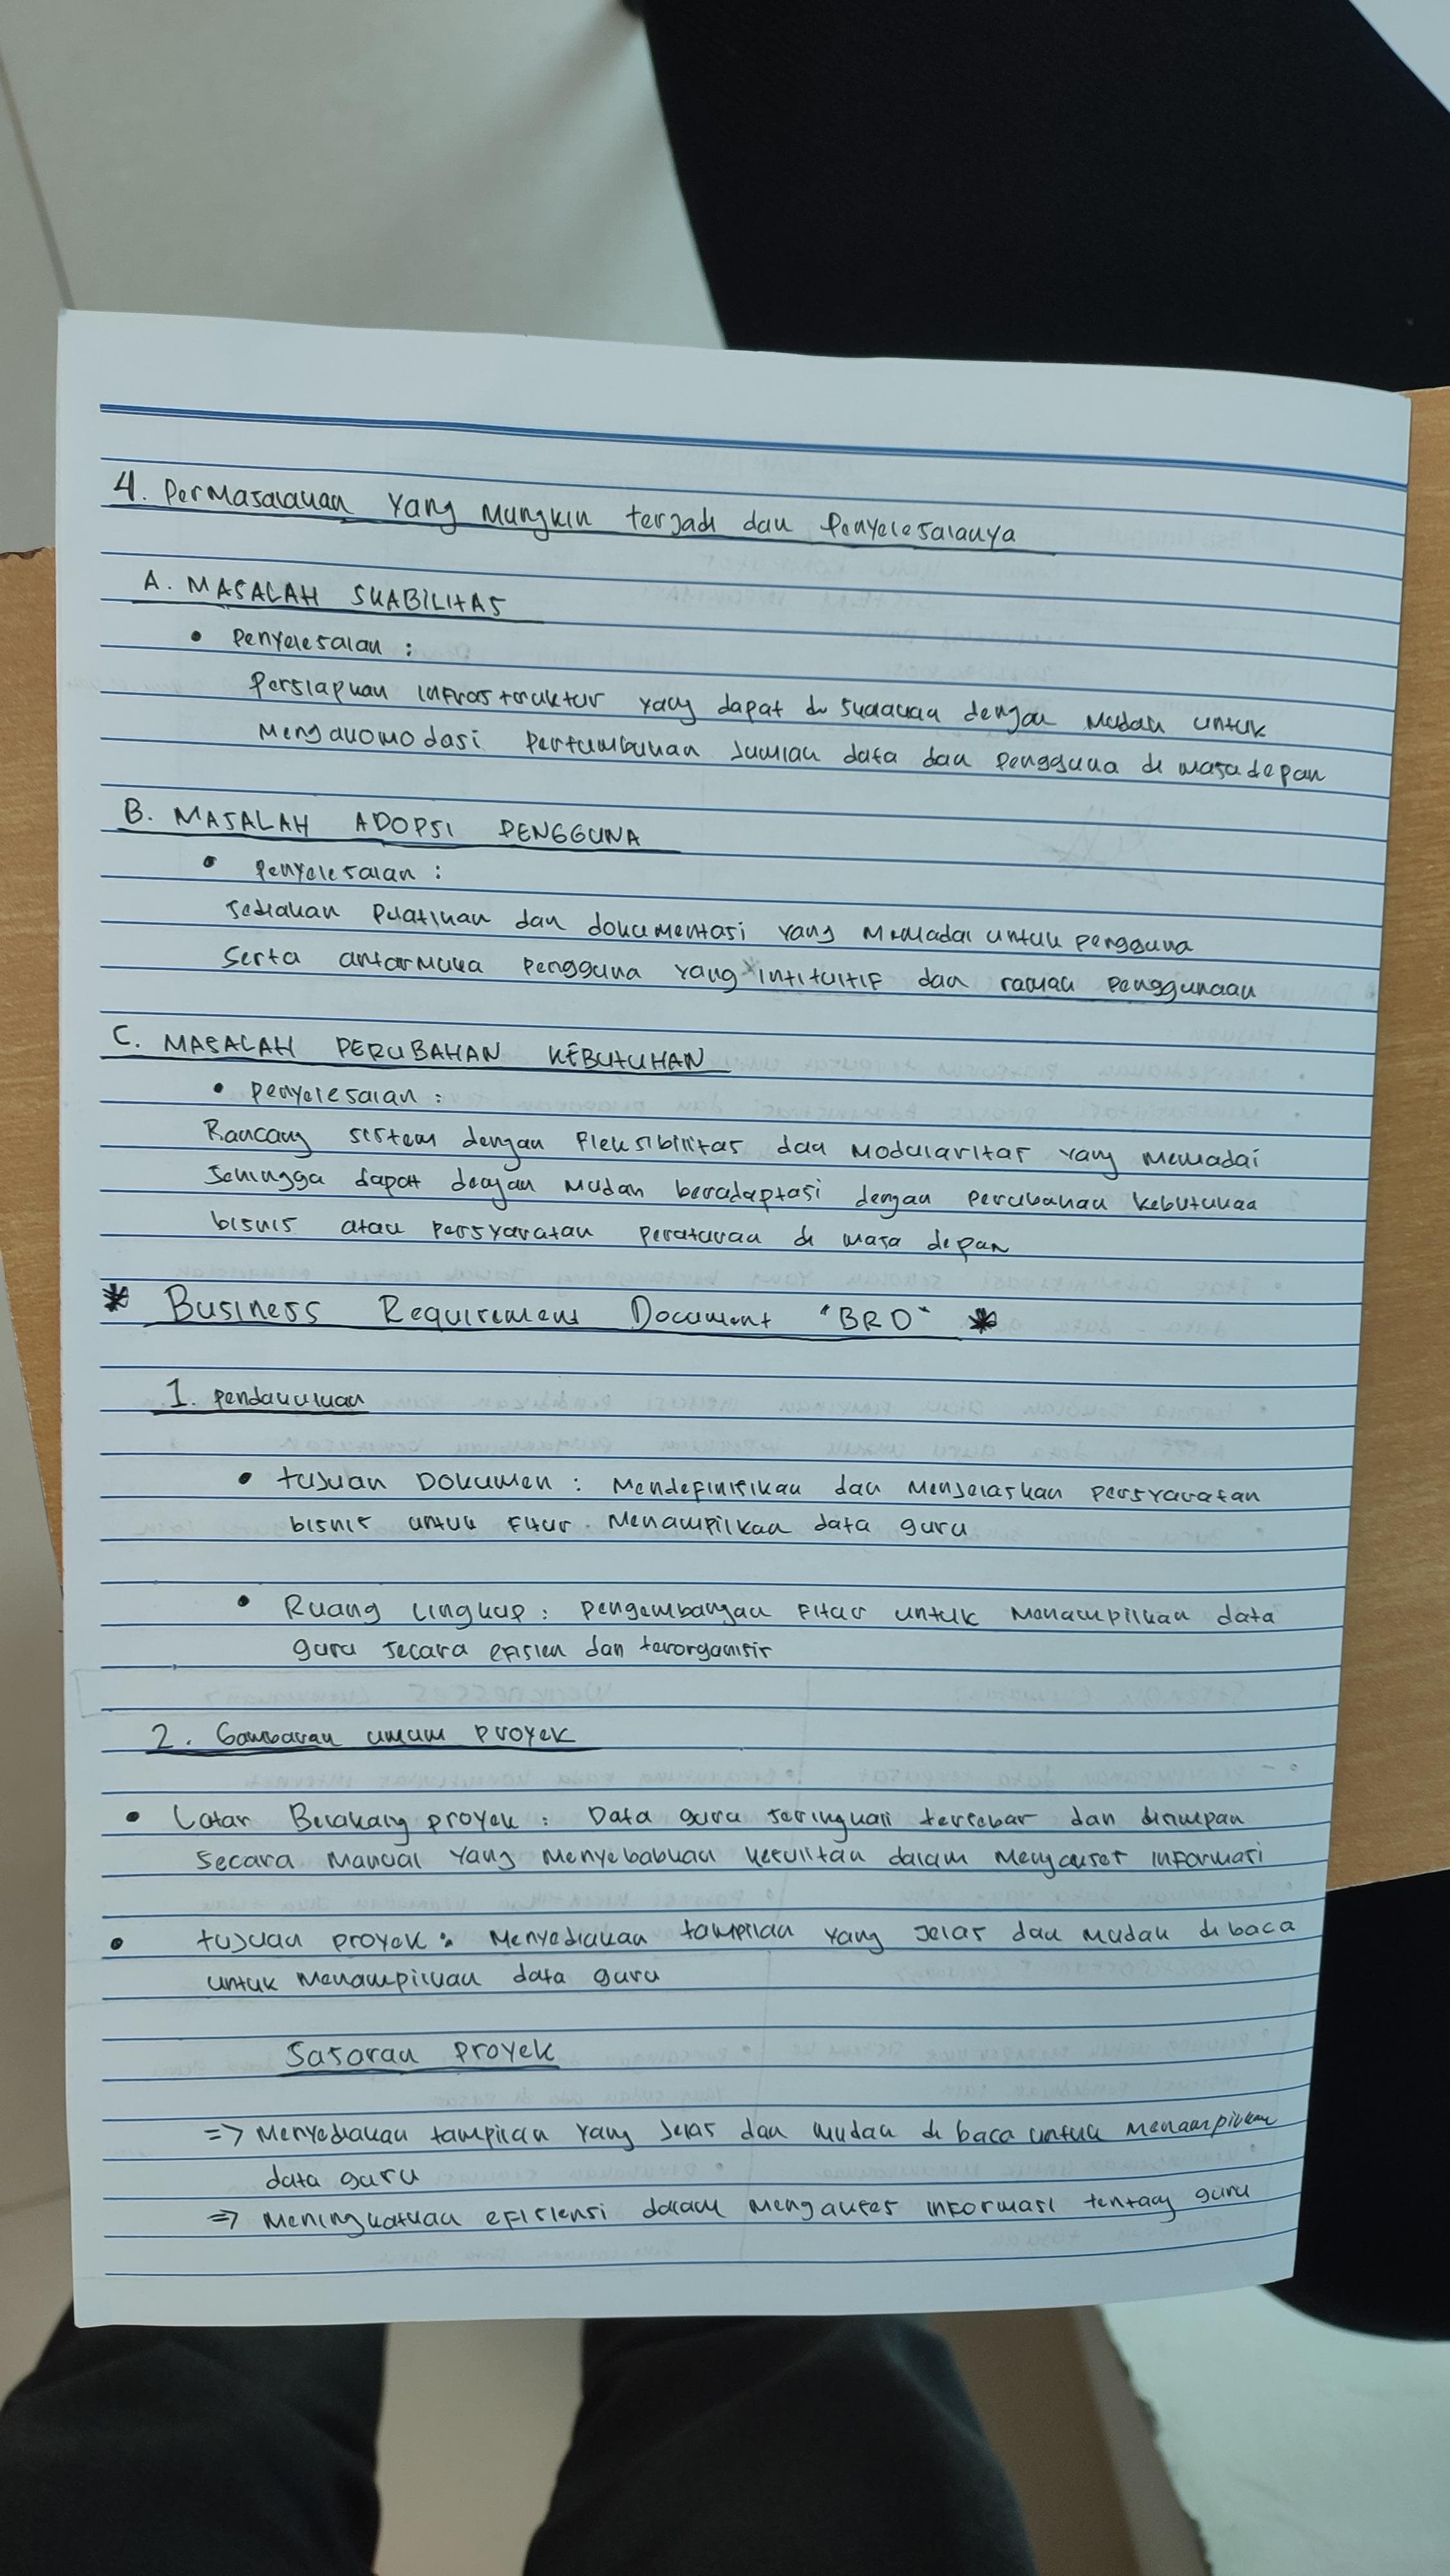 4. Permasalahan yang mungkin terjadi dan Penyelesaianya
A. MASALAH SKABILITAS
• Penyelesaian :
Persiapkan infrastruktur yang dapat di skalakan dengan mudah untuk
Mengakomodasi Pertumbuhan Jumlah data dan Pengguna di masa depan
B. MASALAH ADOPSI PENGGUNA
• Penyelesaian :
Sediakan Pelatihan dan dokumentasi yang Memadai untuk pengguna
Serta antarmuka Pengguna yang intituitif dan ramah Penggunaan
C. MASALAH PERUBAHAN KEBUTUHAN
• Penyelesaian :
Rancang sistem dengan Fleksibilitas dan Modularitas yang Memadai
Sehingga dapat dengan Mudah beradaptasi dengan perubahan kebutuhan
bisnis atau Persyaratan Peraturan di masa depan
* Business Requirement Document "BRD" *
1. Pendahuluan
• tujuan Dokumen : Mendefinisikan dan Menjelaskan persyaratan
bisnis untuk Fitur Menampilkan data guru
• Ruang lingkup : Pengembangan Fitur untuk Menampilkan data
guru secara efisien dan terorganisir
2. Gambaran umum Proyek
• Latar Belakang proyek : Data guru seringkali tersebar dan disimpan
Secara Manual yang Menyebabkan kesulitan dalam Mengakses informasi
• tujuan proyek : Menyediakan tampilan yang Jelas dan Mudah di baca
untuk Menampilkan data guru
Sasaran Proyek
=> Menyediakan tampilan yang Jelas dan Mudah di baca untuk Menampilkan
data guru
=> Meningkatkan efisiensi dalam Mengakses informasi tentang guru